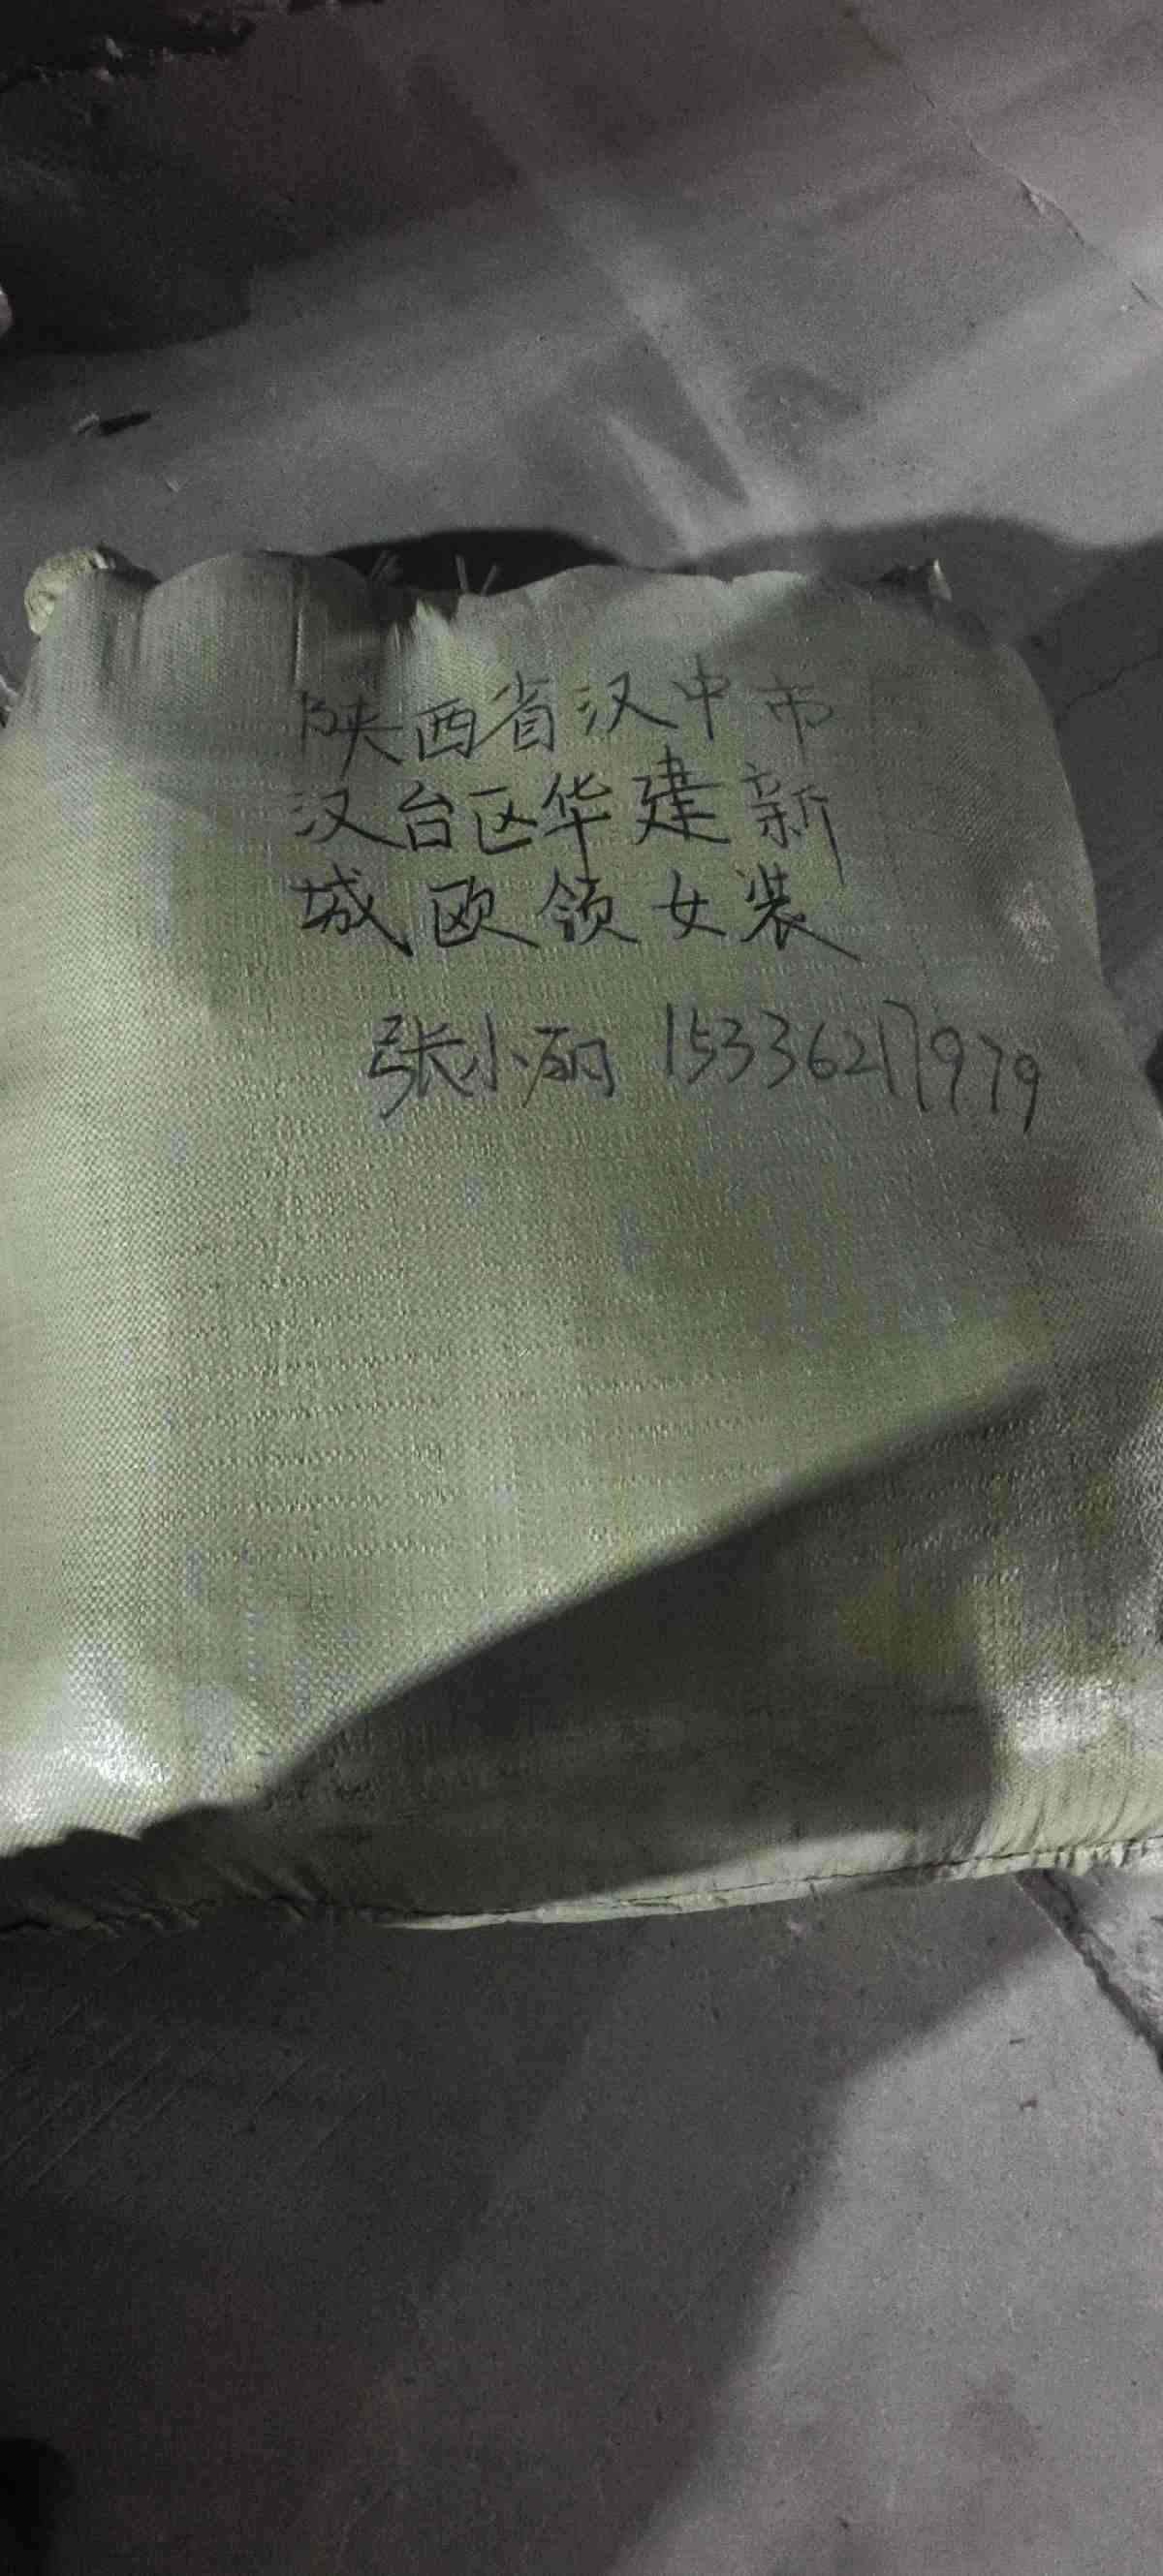 陕西省汉中市
汉台区华建新
城欧领女装
张小丽 15336217979